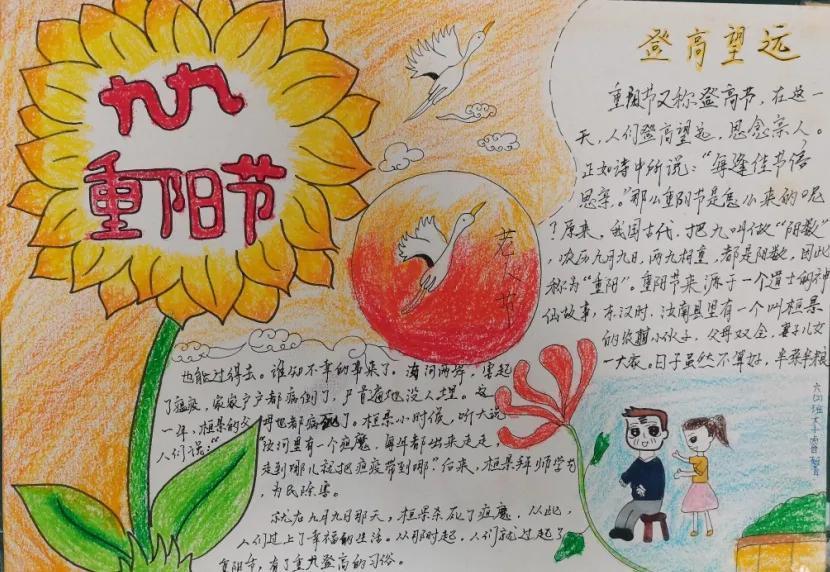 九九
重阳节
老人节
登高望远
重阳节又称登高节，在这一
天，人们登高望远，思念亲人。
正如诗中所说：“每逢佳节倍
思亲。”那么重阳节是怎么来的呢
？原来，我国古代，把九叫做“阳数”
，农历九月九日，两九相重，都是阳数，因此
称为“重阳”。重阳节来源于一个道士的神
仙故事，东汉时，汝南县里有一个叫桓景
的小伙子，父母双全，妻子儿女
一大家。日子虽然不算好，半菜半粮
也能过得去。谁知不幸的事来了。河两岸，害起
了瘟疫，家家户户都病倒了，尸首遍地没人埋。这
一年，桓景的父母也都病死了。桓景小时侯，听大
人们说：“汝河里有一个瘟魔，每年都出来走走，
走到哪儿就把瘟疫带到哪”后来，桓景拜师学
，为民除害。
就在九月九日那天，桓景杀死了瘟魔，从此，
人们过上了幸福的生活。从那时起，人们就过起了
重阳节，有了重九登高的习俗。